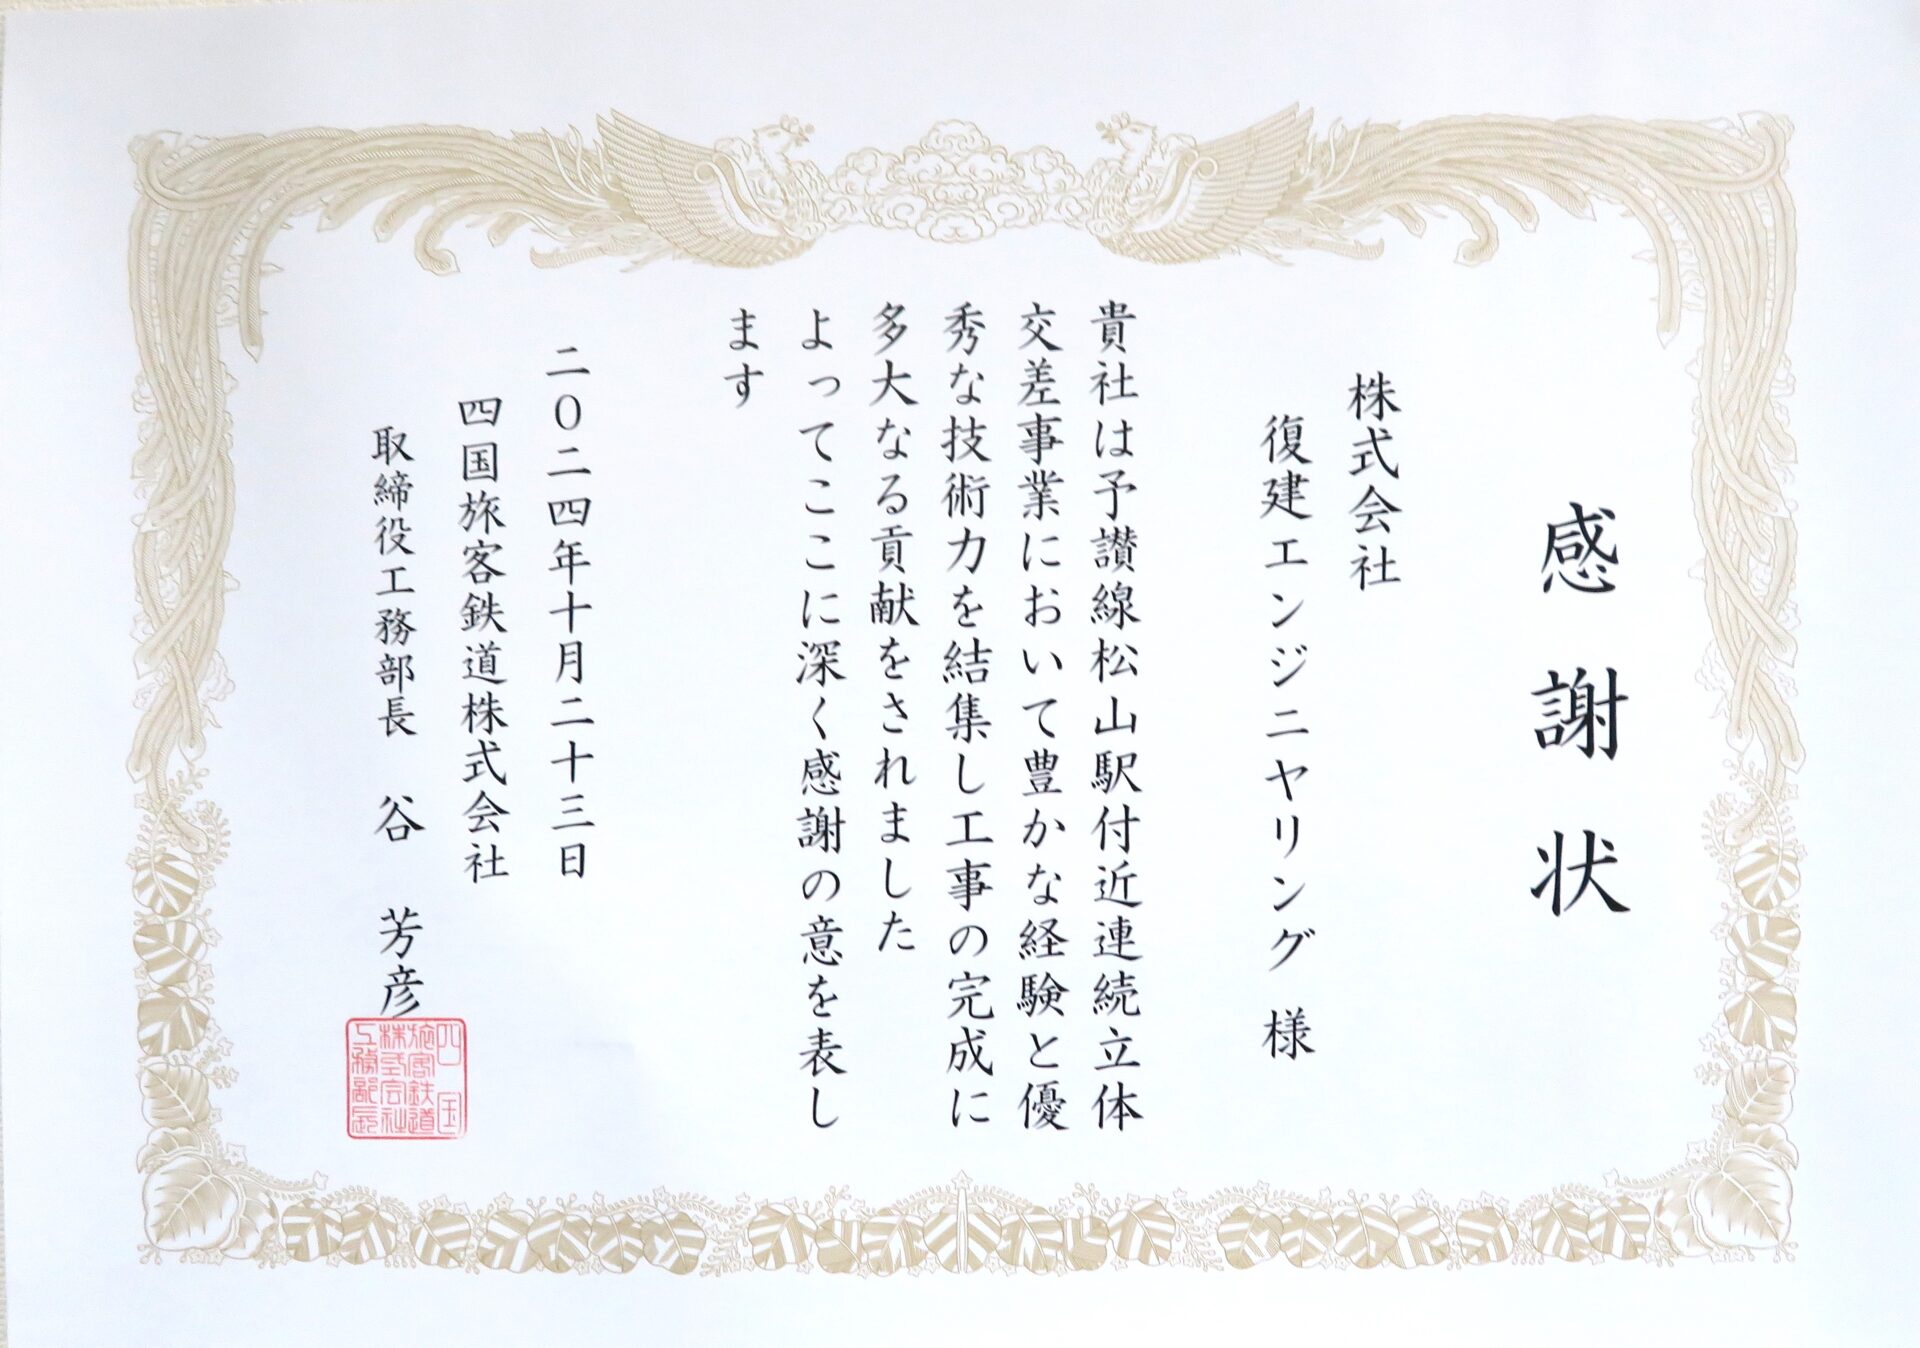 感謝状
株式会社
復建エンジニヤリング 様
貴社は予讃線松山駅付近連続立体
交差事業において豊かな経験と優
秀な技術力を結集し工事の完成に
多大なる貢献をされました
よってここに深く感謝の意を表し
ます
二〇二四年十月二十三日
四国旅客鉄道株式会社
取締役工務部長 谷 芳彦
四国
旅客鉄道
株式会社
工務部長